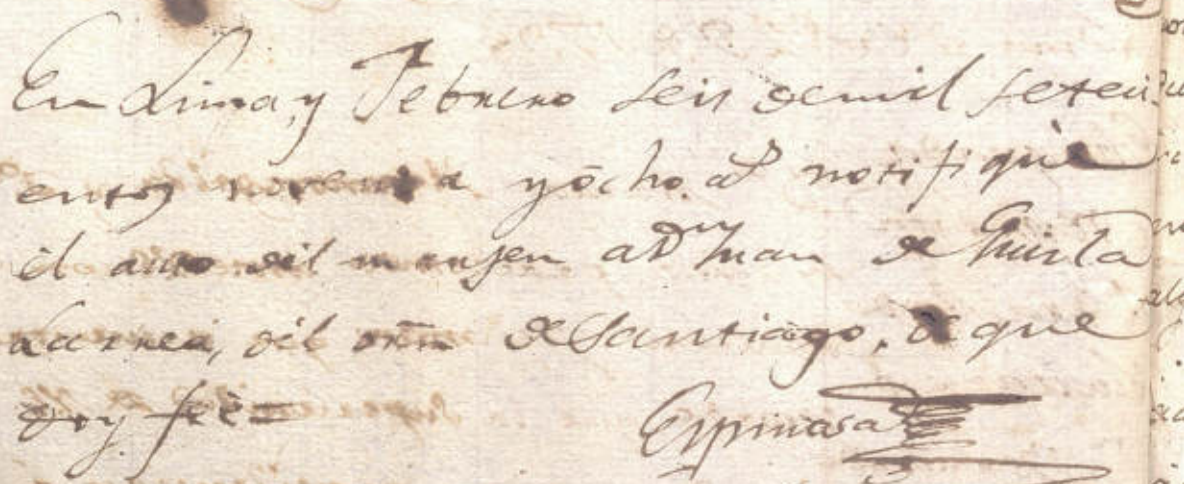 En Lima, y Febrero seis de mil setesi
entos noventa y ocho as notifiquè
el auto del marjen a Dn Juan de Guisla
Larrea, del orñ de Santiago, de que
doy feè=
Espinosa